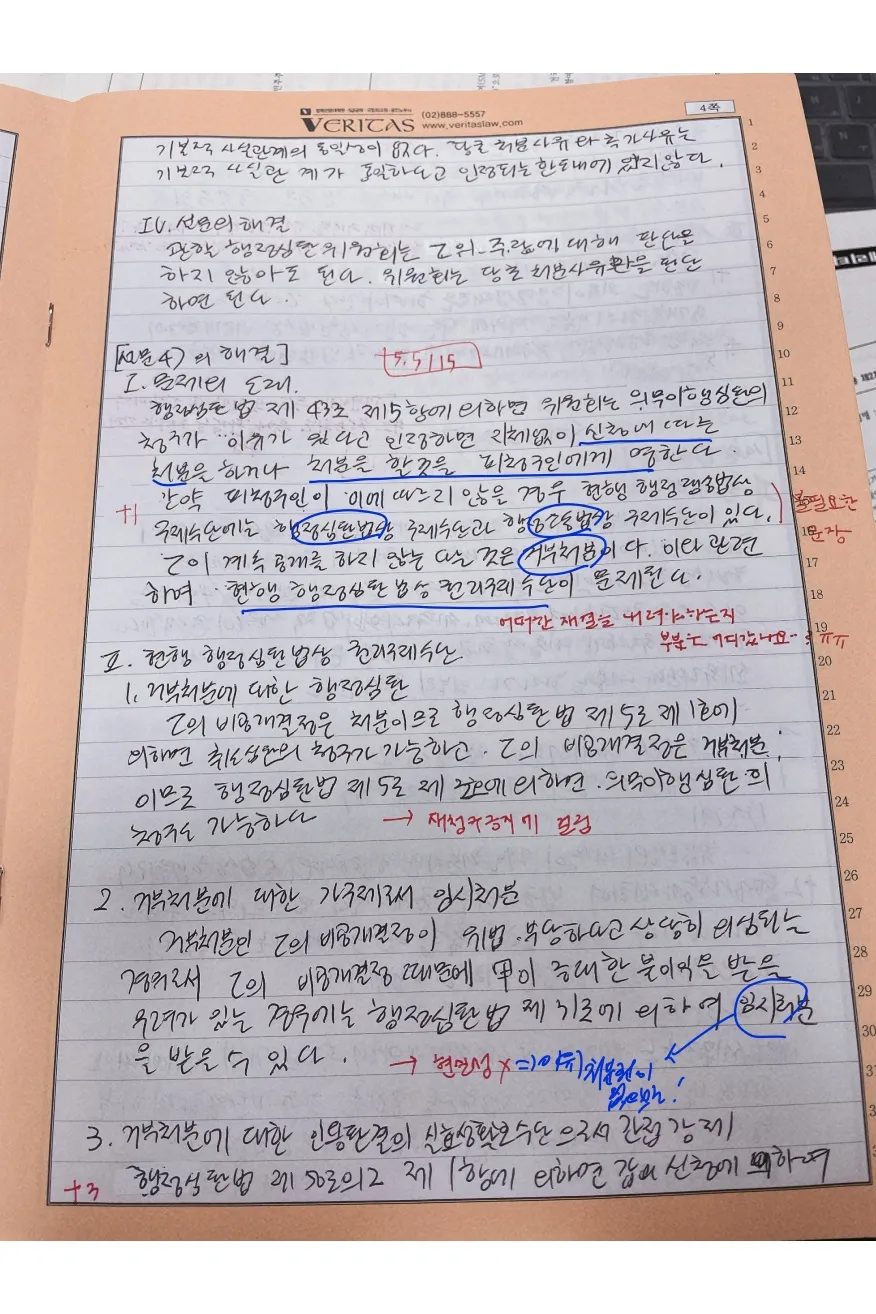 VERITAS (02)868-5557
www.veritaslaw.com
4쪽
기본적 사실관계의 동일성이 없다. 당초 처분사유와 추가사유는
기본적 사실관계가 동일하다고 인정되는 한도내에 있지 않다.
IV. 설문의 해결
관할 행정심판위원회는 乙의 주장에 대해 판단은
하지 않아도 된다. 위원회는 당초 처분사유만을 판단
하면 된다.
[설문4)의 해결]
+5.5/15
I. 문제의 소재.
행정심판법 제43조 제5항에 의하면 위원회는 의무이행심판의
청구가 이유가 있다고 인정하면 지체없이 신청에 따른
처분을 하거나 처분을 할 것을 피청구인에게 명한다.
만약 피청구인이 이에 따르지 않을 경우 현행 행정쟁송법상
+1
구제수단에는 행정심판법상 구제수단과 행정소송법상 구제수단이 있다.
불필요한
문장
乙이 계속 공개를 하지 않는 다는 것은 거부처분이다. 이와 관련
하여 현행 행정심판법상 권리구제수단이 문제된다.
어떠한 재결을 내려야하는지
부분은 어디갔나요 ㅠㅠ
II. 현행 행정심판법상 권리구제수단
1. 거부처분에 대한 행정심판
乙의 비공개결정은 처분이므로 행정심판법 제5조 제1호에
의하면 취소심판의 청구가 가능하고. 乙의 비공개결정은 거부처분
이므로 행정심판법 제5조 제3호에 의하면 의무이행심판의
청구도 가능하다
→ 재심판청구금지에 걸림
2. 거부처분에 대한 가구제로서 임시처분
거부처분인 乙의 비공개결정이 위법·부당하다고 상당히 의심되는
경우로서 乙의 비공개결정 때문에 甲이 중대한 불이익을 받을
우려가 있는 경우에는 행정심판법 제31조에 의하여 임시처분
을 받을 수 있다.
→ 현만성 x =>
3. 거부처분에 대한 인용판결의 실효성확보수단으로서 간접강제
+3
행정심판법 제50조의2 제1항에 의하면 갑의 신청에 의하여
1
2
3
4
5
6
7
8
9
10
11
12
13
14
17
18
19
20
21
22
23
24
25
26
27
28
29
30